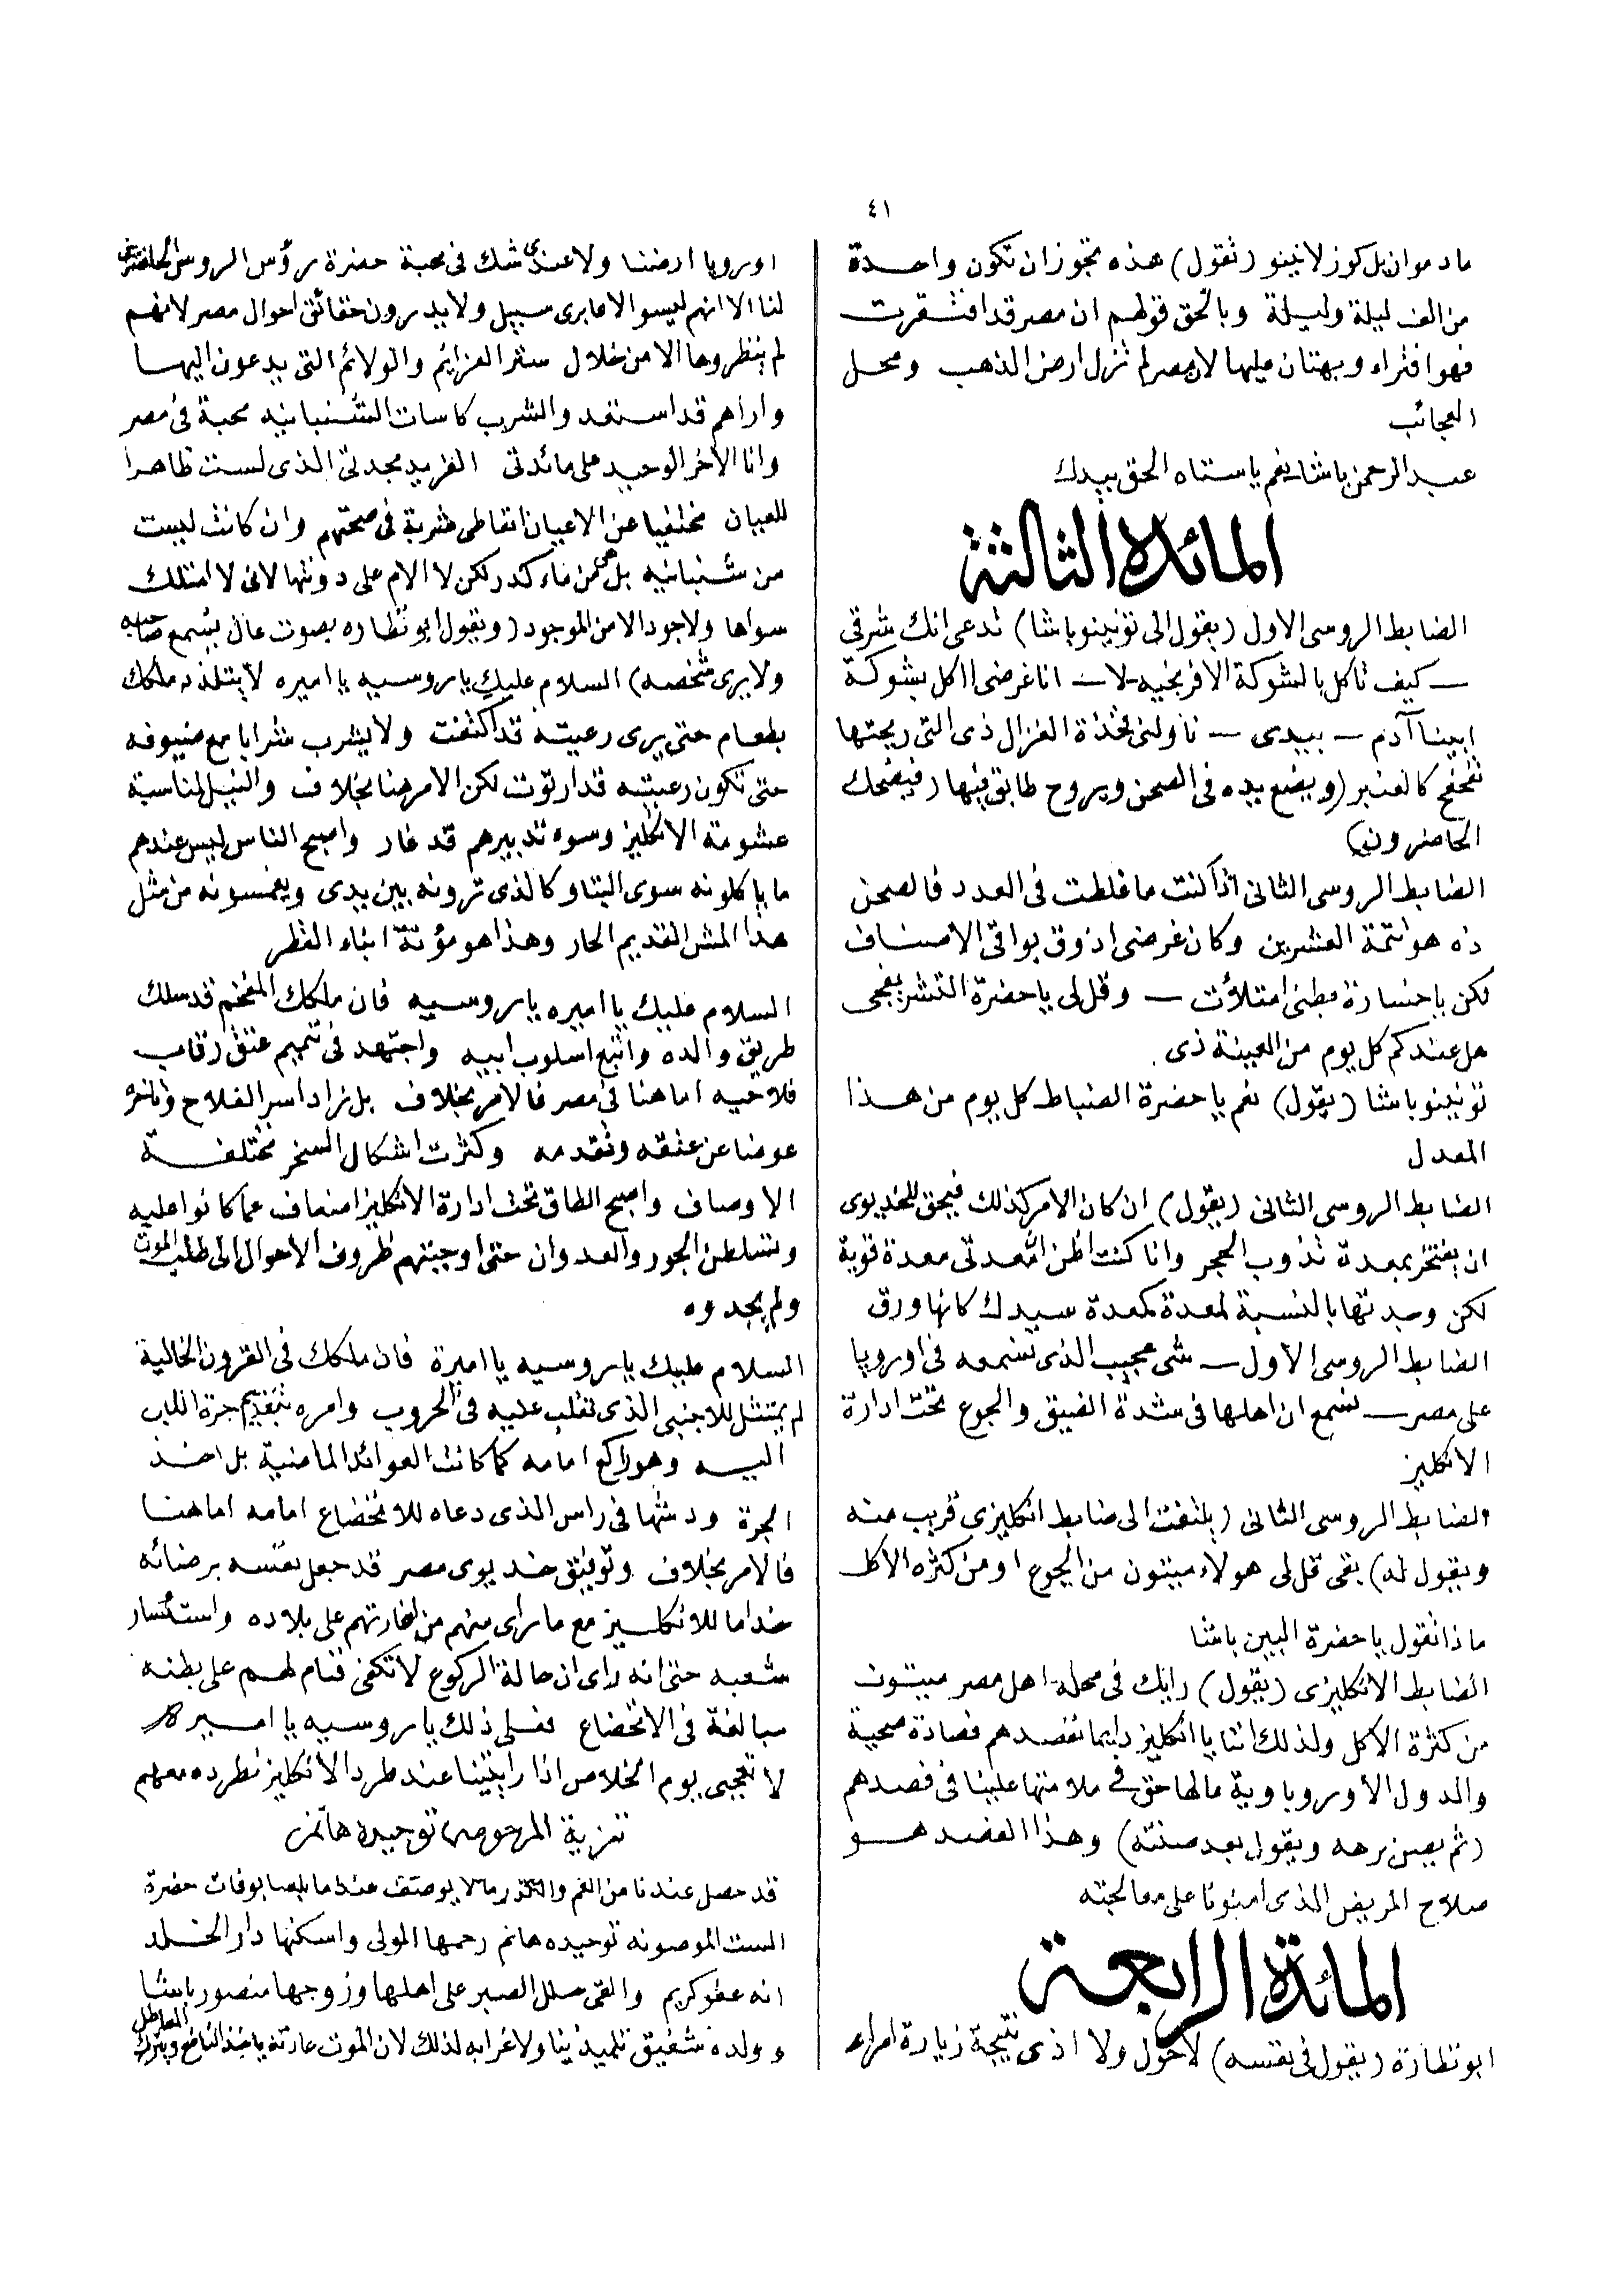 ٤١
مادموازيل كوزلانينو (تقول) هذه تجوز ان تكون واحدة
من الف ليلة وليلة وبالحق قولهم ان مصر قد افتقرت
فهو افتراء وبهتان عليها لان مصر لم تزل ارض الذهب ومحل
العجائب
عبد الرحمن باشا نعم يا ستاه الحق بيدك
المائدة الثالثة
الضابط الروسى الاول (يقول الى تونينو باشا) تدعى انك شرقى
— كيف تاكل بالشوكة الافرنجيه — لا — انا غرضى ااكل بشوكة
ابينا آدم — بيدى — ناولنى فخذة الغزال ذى التى ريحتها
تفحفح كالعنبر (ويضع يده فى الصحن ويروح طابق فيها فيضحك
الحاضرون)
الضابط الروسى الثانى اذا كنت ما غلطت فى العدد فالصحن
ده هو تتمة العشرين وكان غرضى اذوق بواقى الاصناف
لكن يا خسارة بطنى امتلأت — وقل لى يا حضرة التشريفجى
هل عندكم كل يوم من العينة ذى
تونينو باشا (يقول) نعم يا حضرة الضباط كل يوم من هذا
المعدل
الضابط الروسى الثانى (يقول) ان كان الامر كذلك فيحق للخديوى
ان يفتخر بمعدة تذوب الحجر وانا كنت اظن ان معدتى معدة قوية
لكن وجدتها بالنسبة لمعدة كمعدة سيدك كانها ورق
الضابط الروسى الاول — شى عجيب الذى نسمعه فى اوروپا
على مصر — نسمع ان اهلها فى شدة الضيق والجوع تحت ادارة
الانكليز
الضابط الروسى الثانى (يلتفت الى ضابط انكليزى قريب منه
ويقول له) بقى قل لى هولاء ميتون من الجوع او من كثره الاكل
ماذا تقول يا حضرة البيين باشا
الضابط الانكليزى (يقول) رايك فى محله اهل مصر ميتون
من كثرة الاكل ولذلك اننا يا انكليز دايما نفصدهم فصادة صحية
والدول الاوروباوية مالها حق فى ملامتها علينا فى فصدهم
(ثم يصبن برهه ويقول بعد صنته) وهذا الفصد هو
صلاح المريض الذى امنونا على معالجته
المائدة الرابعة
ابو نظارة (يقول فى نفسه) لا حول ولا اذى نتيجة زيارة امراء
اوروپا ارضنا ولا عندى شك فى محبة حضرة رؤس الروس الحاضرين
لنا الا انهم ليسوا الا عابرى سبيل ولا يدرون حقائق احوال مصر لانهم
لم ينظروها الا من خلال ستر العزايم والولائم التى يدعون اليها
واراهم قد استغد والشرب كاسات الشنبانيه محبة فى مصر
وانا الاخر الوحيد على مائدتى الفريد بجدتى الذى لست ظاهرا
للعيان مختفيا عن الاعيان اتعاطى شربة فى صحتهم وان كانت ليست
من شنبانيه بل هى من ماء كدر لكن لا الام على دونتها لانى لا امتلك
سواها ولا جود الا من الموجود (ويقول ابو نظاره بصوت عال يسمع صاحبه
ولا يرى شخصه) السلام عليك يا روسيه يا اميره لا يتلذذ ملكك
بطعام حتى يرى رعيته قد اكتفت ولا يشرب شرابا مع ضيوفه
حتى تكون رعيته قد ارتوت لكن الامر هنا بخلاف والنيل لمناسبة
عشومة الانكليز وسوء تدبيرهم قد غار واصبح الناس ليس عندهم
ما ياكلونه سوى البتاو كالذى ترونه بين يدى ويغمسونه من مثل
هذا المش القديم الحار وهذا هو مؤنة ابناء القطر
السلام عليك يا اميره يا روسيه فان ملكك المفخم قد سلك
طريق والده واتبع اسلوب ابيه واجتهد فى تتميم عتق رقاب
فلاحيه اما هنا فى مصر فالامر بخلاف بل زاد اسر الفلاح وتاخره
عوضا عن عتقه وتقدمه وكثرت اشكال السخر مختلفة
الاوصاف واصبح الطاق تحت ادارة الانكليز اضعاف عما كانوا عليه
وتسلطن الجور والعدوان حتى اوجبتهم ظروف الاحوال الى طلب الموت
ولم يجدوه
السلام عليك يا روسيه يا اميرة فان ملكك فى القرون الخالية
لم يمتثل للاجنبى الذى تغلب عليه فى الحروب وامره بتقديم جرة اللبن
اليه وهو راكع امامه كما كانت العوائد الماضية بل اخذ
الجرة ودشها فى راس الذى دعاه للانخضاع امامه اما هنا
فالامر بخلاف وتوفيق خديوى مصر قد جعل نفسه برضائه
خداما للانكليز مع ما راى منهم من اغارتهم على بلاده واستئسار
شعبه حتى انه راى ان حالة الركوع لا تكفى فنام لهم على بطنه
مبالغة فى الانخضاع فعلى ذلك يا روسيه يا اميره
لا تعجبى يوم الخلاص اذا رايتينا عند طرد الانكليز نطرده معهم
تعزية المرحومه توحيده هانم
قد حصل عندنا من الغم والكدر ما لا يوصف عندما بلغنا بوفات حضرة
الست الموصونه توحيده هانم رحمها المولى واسكنها دار الخلد
انه عفو كريم والقى حلل الصبر على اهلها وزوجها منصور باشا
وولده شفيق تلميذنا ولا غرابه لذلك لان الموت عادته ياخذ النافع ويترك العاطل